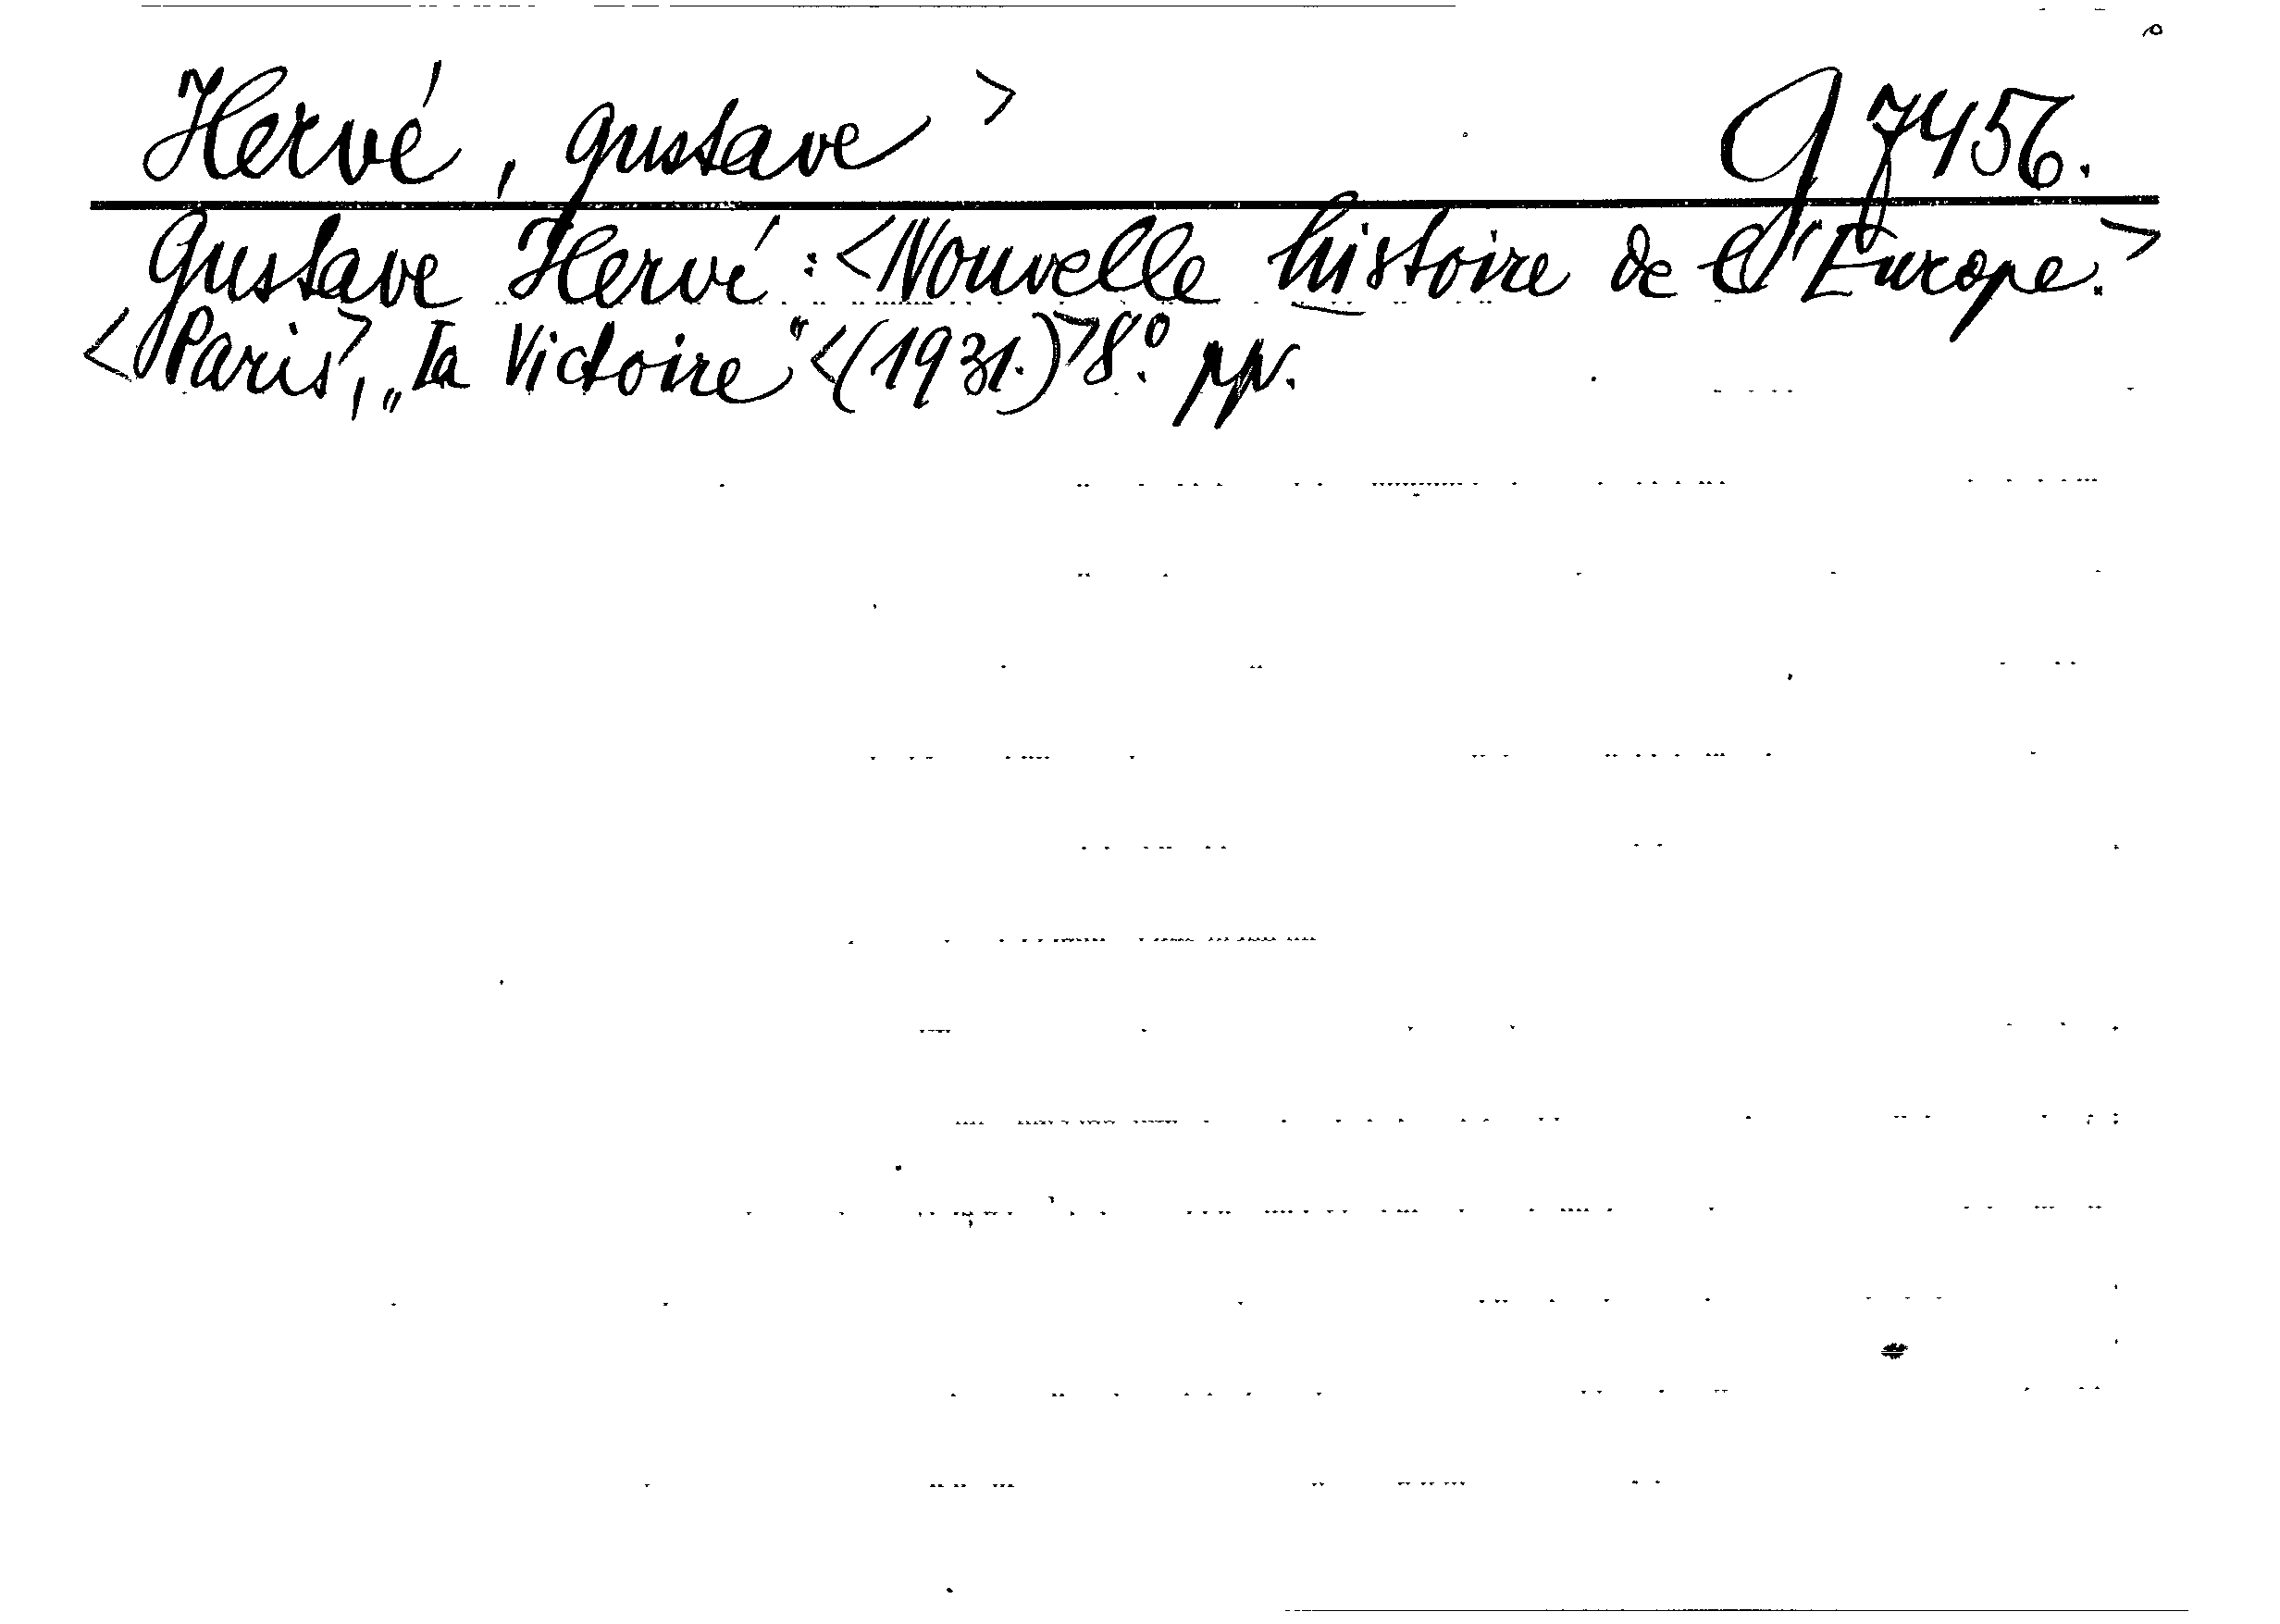 Hervé, Gustave> G 7456.
Gustave Hervé: <Nouvelle histoire de l'Europe.>
<Paris>, „La Victoire" <(1931.)> 8.° pp.